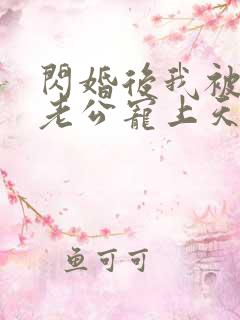 閃婚後我被
老公寵上天
鱼可可